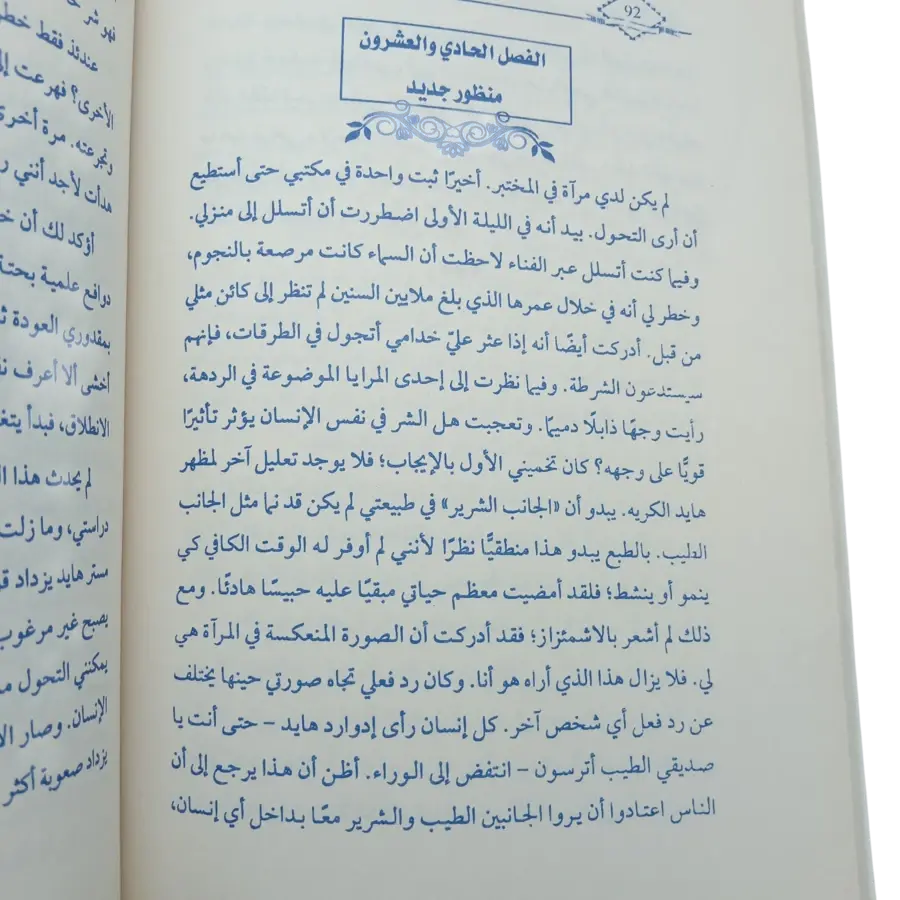 92
الفصل الحادي والعشرون
منظور جديد
لم يكن لدي مرآة في المختبر. أخيرًا ثبت واحدة في مكتبي حتى أستطيع
أن أرى التحول. بيد أنه في الليلة الأولى اضطررت أن أتسلل إلى منزلي.
وفيما كنت أتسلل عبر الفناء لاحظت أن السماء كانت مرصعة بالنجوم،
وخطر لي أنه في خلال عمرها الذي بلغ ملايين السنين لم تنظر إلى كائن مثلي
من قبل. أدركت أيضًا أنه إذا عثر عليّ خدامي أتجول في الطرقات، فإنهم
سيستدعون الشرطة. وفيما نظرت إلى إحدى المرايا الموضوعة في الردهة،
رأيت وجهًا ذابلًا دميمًا. وتعجبت هل الشر في نفس الإنسان يؤثر تأثيرًا
قويًّا على وجهه؟ كان تخميني الأول بالإيجاب؛ فلا يوجد تعليل آخر لمظهر
هايد الكريه. يبدو أن «الجانب الشرير» في طبيعتي لم يكن قد نما مثل الجانب
الطيب. بالطبع يبدو هذا منطقيًّا نظرًا لأنني لم أوفر له الوقت الكافي كي
ينمو أو ينشط؛ فلقد أمضيت معظم حياتي مبقيًا عليه حبيسًا هادئًا. ومع
ذلك لم أشعر بالاشمئزاز؛ فقد أدركت أن الصورة المنعكسة في المرآة هي
لي. فلا يزال هذا الذي أراه هو أنا. وكان رد فعلي تجاه صورتي حينها يختلف
عن رد فعل أي شخص آخر. كل إنسان رأى إدوارد هايد – حتى أنت يا
صديقي الطيب أترسون – انتفض إلى الوراء. أظن أن هذا يرجع إلى أن
الناس اعتادوا أن يروا الجانبين الطيب والشرير معًا بداخل أي إنسان،
فهو شر
عندئذ فقط
الأخرى؟ فهرعت
وتجرعته. مرة أخرى
هدأت لأجد أنني
أؤكد لك أن
دوافع علمية بحتة
بمقدوري العودة
أخشى ألا أعرف
الانطلاق، فبدأ
لم يحدث هذا
دراستي، وما زلت
مستر هايد يزداد
يصبح غير مرغوب
يمكنني التحول
الإنسان. وصار
يزداد صعوبة أكثر